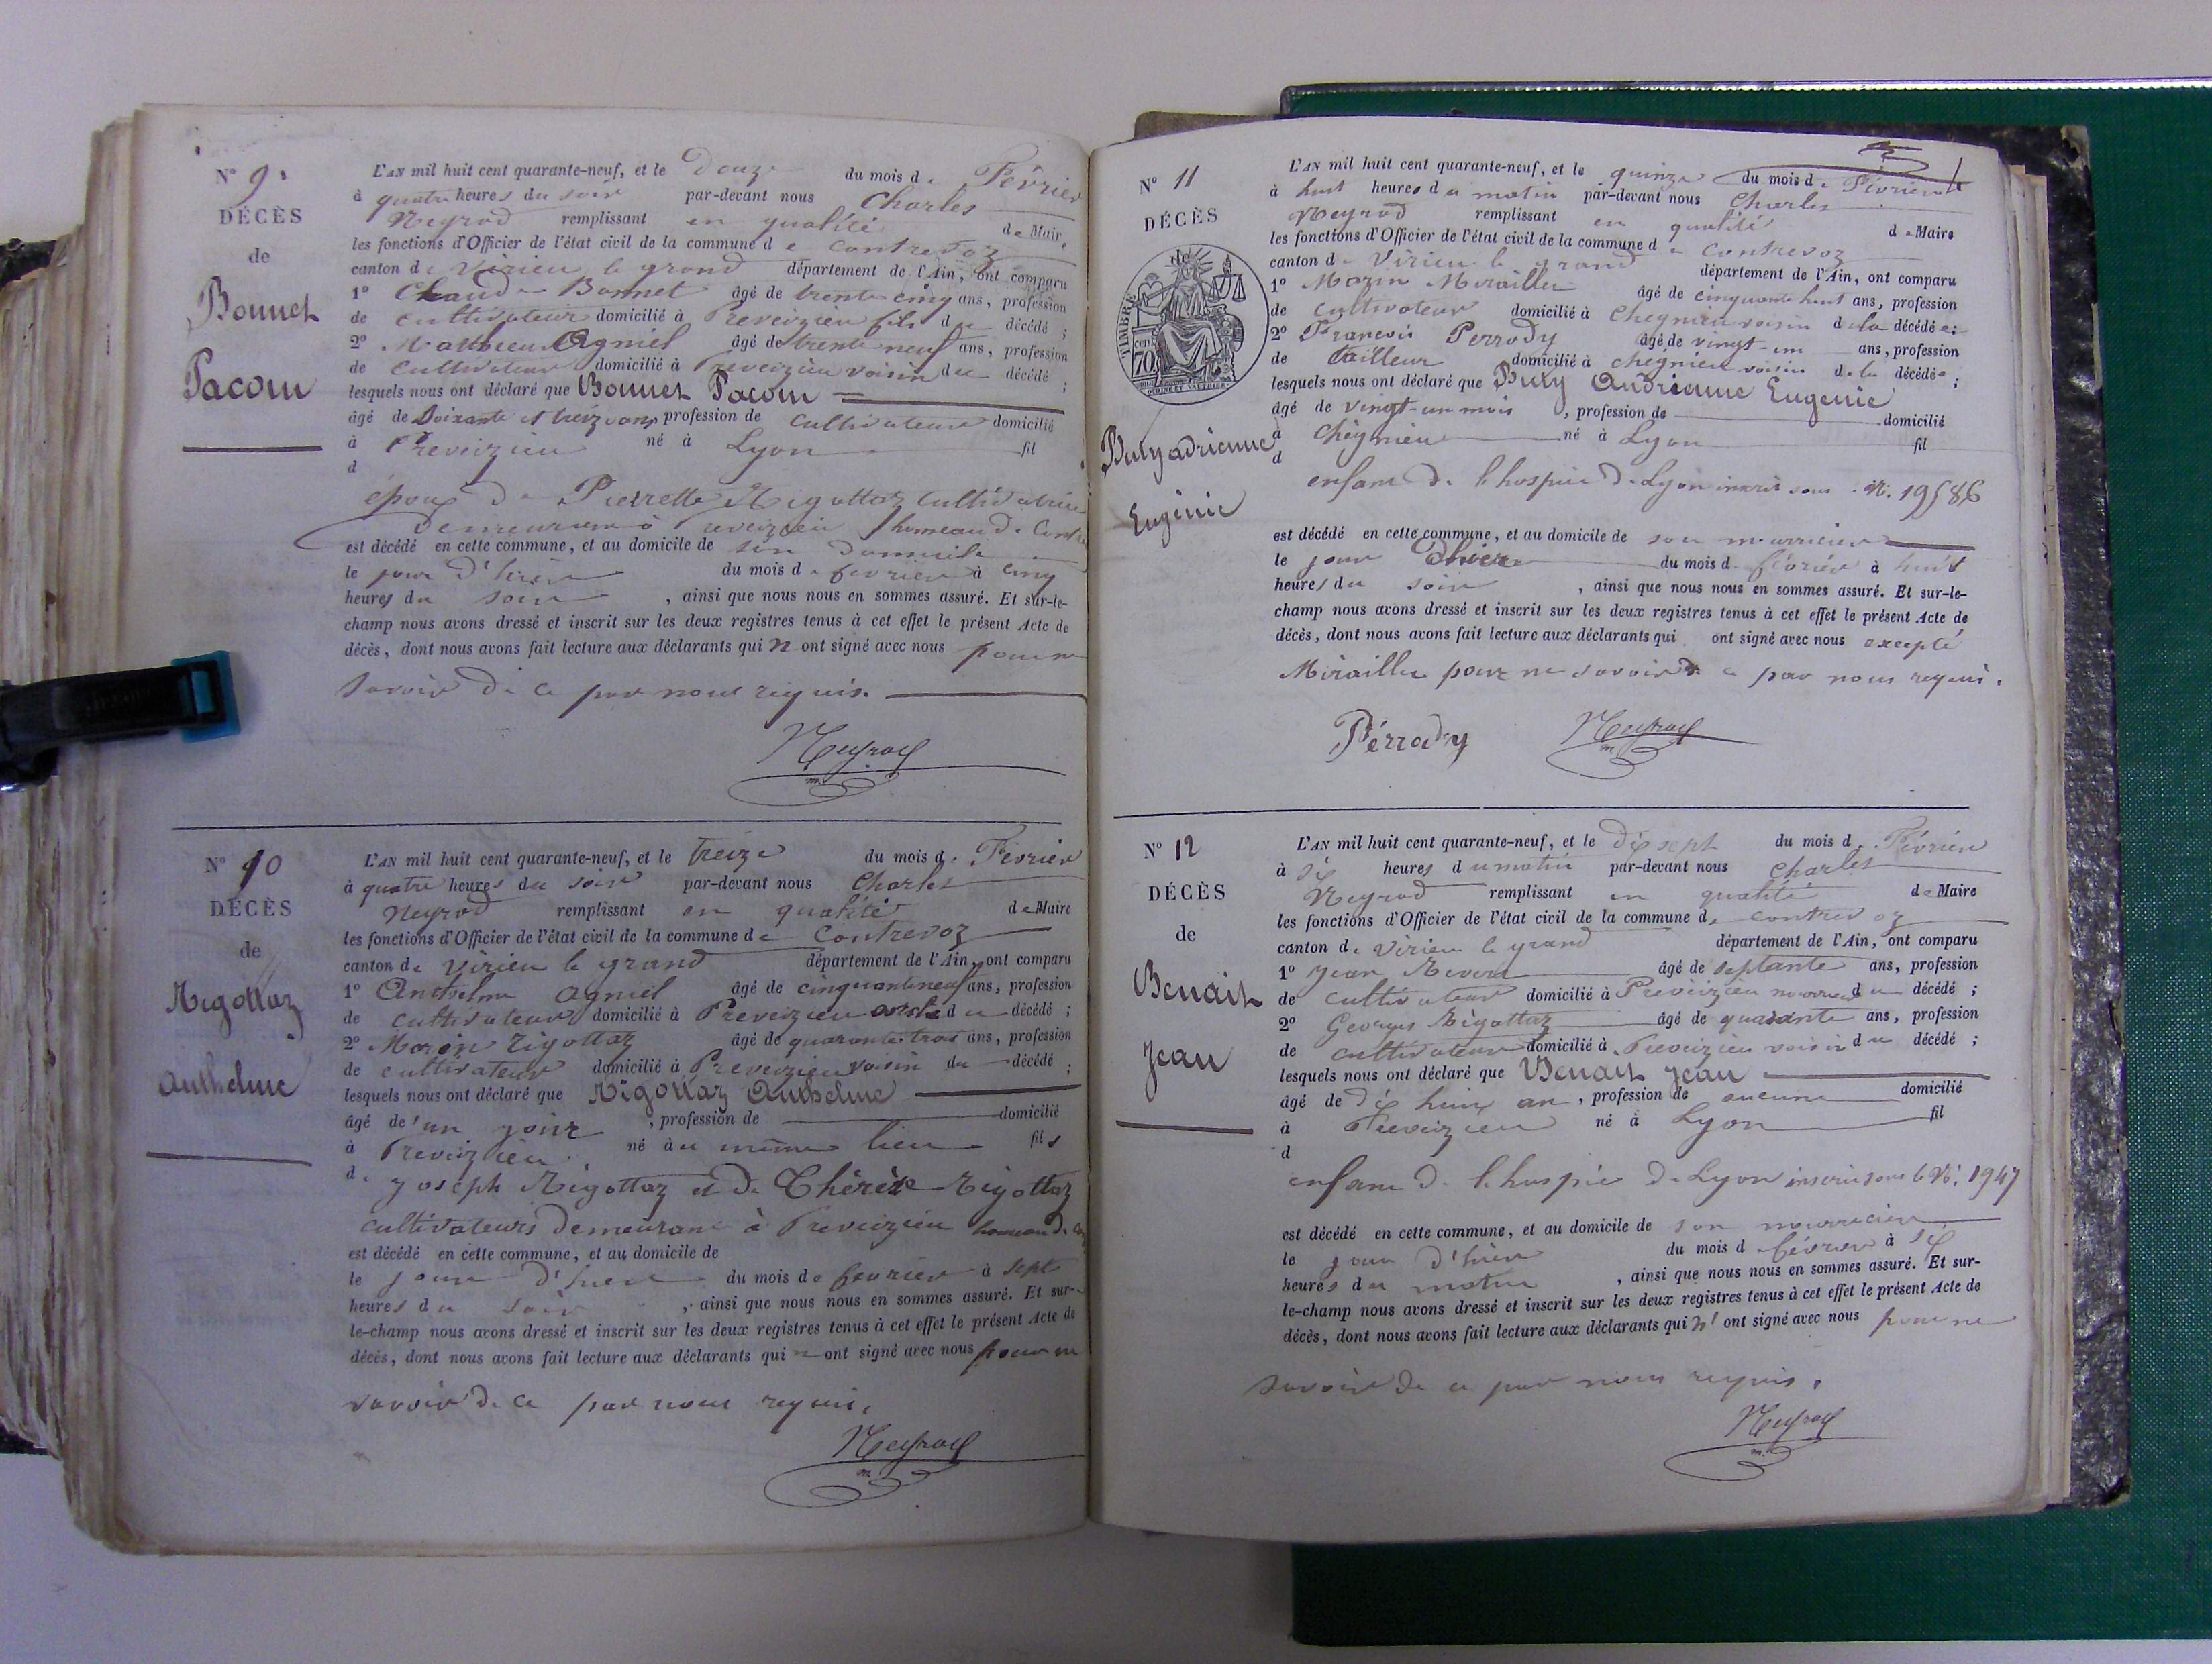 N° 9.
DÉCÈS
de
Bonnet
Pacom
L'AN mil huit cent quarante-neuf, et le Douze du mois de Février
à quatre heures du soir par-devant nous Charles
Neyrod remplissant en qualité de Maire
les fonctions d'Officier de l'état civil de la commune de Contrevoz
canton de Virieu le grand département de l'Ain, ont comparu
1° Claude Bonnet âgé de trente cinq ans, profession
de cultivateur domicilié à Preveizieu fils du décédé ;
2° Mathieu Agniel âgé de trente neuf ans, profession
de Cultivateur domicilié à Preveizieu voisin du décédé ;
lesquels nous ont déclaré que Bonnet Pacom
âgé de Soixante et treize ans, profession de Cultivateur domicilié
à Preveizieu né à Lyon fil
d
époux de Pierrette Rigottaz Cultivatrice
demeurant à Preveizieu hameau de Contre
est décédé en cette commune, et au domicile de son domicile
le jour d'hier du mois de février à cinq
heures du soir , ainsi que nous nous en sommes assuré. Et sur-le-
champ nous avons dressé et inscrit sur les deux registres tenus à cet effet le présent Acte de
décès, dont nous avons fait lecture aux déclarants qui n ont signé avec nous pour ne
savoir de ce par nous requis.
Neyrod
N° 10
DÉCÈS
de
Rigottaz
Anthelme
L'AN mil huit cent quarante-neuf, et le treize du mois de Février
à quatre heures du soir par-devant nous Charles
Neyrod remplissant en qualité de Maire
les fonctions d'Officier de l'état civil de la commune de Contrevoz
canton de Virieu le grand département de l'Ain, ont comparu
1° Anthelme Agniel âgé de cinquante neuf ans, profession
de cultivateur domicilié à Preveizieu oncle du décédé ;
2° Marin Rigottaz âgé de quarante trois ans, profession
de cultivateur domicilié à Preveizieu voisin du décédé ;
lesquels nous ont déclaré que Rigottaz Anthelme
âgé de un jour , profession de domicilié
à Preveizieu né au même lieu fils
de Joseph Rigottaz et de Thérèse Rigottaz
cultivateurs demeurant à Preveizieu hameau de
est décédé en cette commune, et au domicile de
le jour d'hier du mois de février à sept
heures du soir , ainsi que nous nous en sommes assuré. Et sur-
le-champ nous avons dressé et inscrit sur les deux registres tenus à cet effet le présent Acte de
décès, dont nous avons fait lecture aux déclarants qui n ont signé avec nous pour ne
savoir de ce par nous requis.
Neyrod
N° 11
DÉCÈS
de
TIMBRE
cen
70
Buty adrienne
Eugénie
L'AN mil huit cent quarante-neuf, et le quinze du mois de Février
à huit heures du matin par-devant nous Charles
Neyrod remplissant en qualité de Maire
les fonctions d'Officier de l'état civil de la commune de Contrevoz
canton de Virieu le grand département de l'Ain, ont comparu
1° Mazin Mirailler âgé de cinquante huit ans, profession
de cultivateur domicilié à Chegnieu voisin de la décédée ;
2° Francois Perrody âgé de vingt-un ans, profession
de tailleur domicilié à chegnieu voisin de la décédée ;
lesquels nous ont déclaré que Buty Andrienne Eugenie
âgé de vingt-un mois , profession de domicilié
à Chègnieu né à Lyon fil
d
enfant de l'hospice de Lyon inscrit sous N°. 19586
est décédé en cette commune, et au domicile de son nourricier
le jour d'hier du mois de février à huit
heures du soir , ainsi que nous nous en sommes assuré. Et sur-le-
champ nous avons dressé et inscrit sur les deux registres tenus à cet effet le présent Acte de
décès, dont nous avons fait lecture aux déclarants qui ont signé avec nous excepté
Mirailler pour ne savoir de ce par nous requis.
Pérrody Neyrod
N° 12
DÉCÈS
de
Benait
Jean
L'AN mil huit cent quarante-neuf, et le Dix sept du mois de Février
à six heures du matin par-devant nous Charles
Neyrod remplissant en qualité de Maire
les fonctions d'Officier de l'état civil de la commune de Contrevoz
canton de Virieu le grand département de l'Ain, ont comparu
1° Jean Revera âgé de septante ans, profession
de cultivateur domicilié à Preveizieu nourricier du décédé ;
2° Georges Rigottaz âgé de quarante ans, profession
de cultivateur domicilié à Preveizieu voisin du décédé ;
lesquels nous ont déclaré que Benait Jean
âgé de dix huit an , profession de aucune domicilié
à Preveizieu né à Lyon fil
d
enfant de l'hospice de Lyon inscrit sous le N°. 1947
est décédé en cette commune, et au domicile de son nourricier
le jour d'hier du mois d février à six
heures du matin , ainsi que nous nous en sommes assuré. Et sur-
le-champ nous avons dressé et inscrit sur les deux registres tenus à cet effet le présent Acte de
décès, dont nous avons fait lecture aux déclarants qui n' ont signé avec nous pour ne
savoir de ce par nous requis.
Neyrod